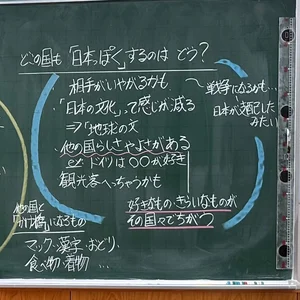 どの国も「日本っぽく」するのは どう？
相手がいやがるかも
・「日本の文化」って感じが減る
⇒「地球」の文
他の国らしさやよさがある
ex ドバイは〇〇が好き
観光客へっちゃうかも
好きなもの、きらいなものが
その国々でちがう
戦争になるかも…
日本が支配した
みたい
他国と
「かけ橋」になるもの
マック・漢字・おどり、
食べ物・着物 …